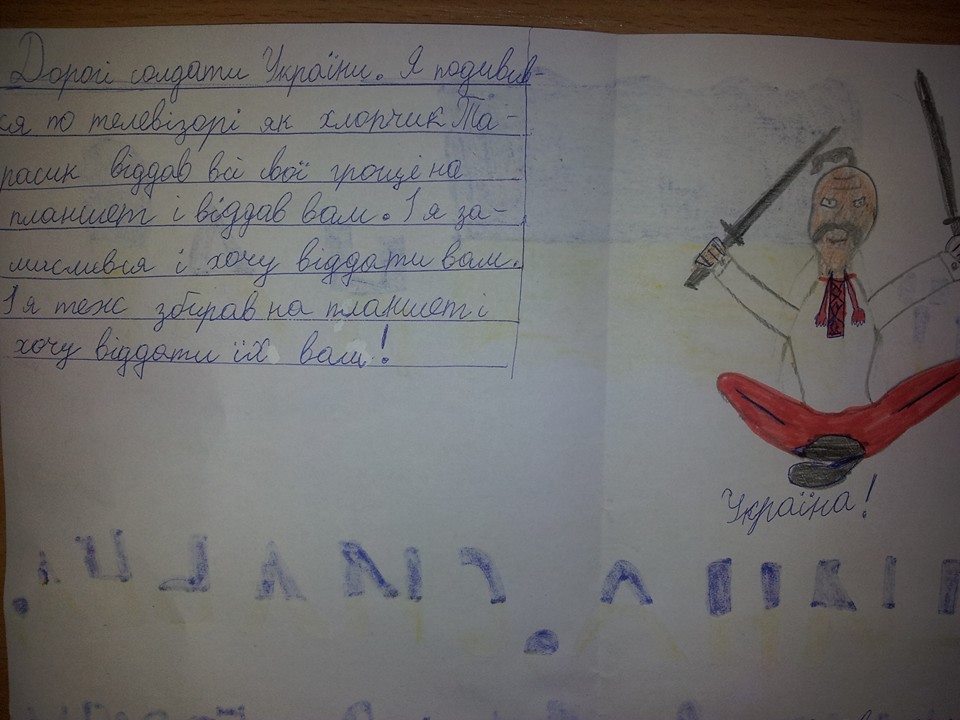 Дорогі солдати України. Я подивив-
ся по телевізорі як хлопчик Та-
расик віддав всі свої гроші на
планшет і віддав вам. І я за-
мислився і хочу віддати вам.
І я теж збирав на планшет і
хочу віддати їх вам!
Україна!